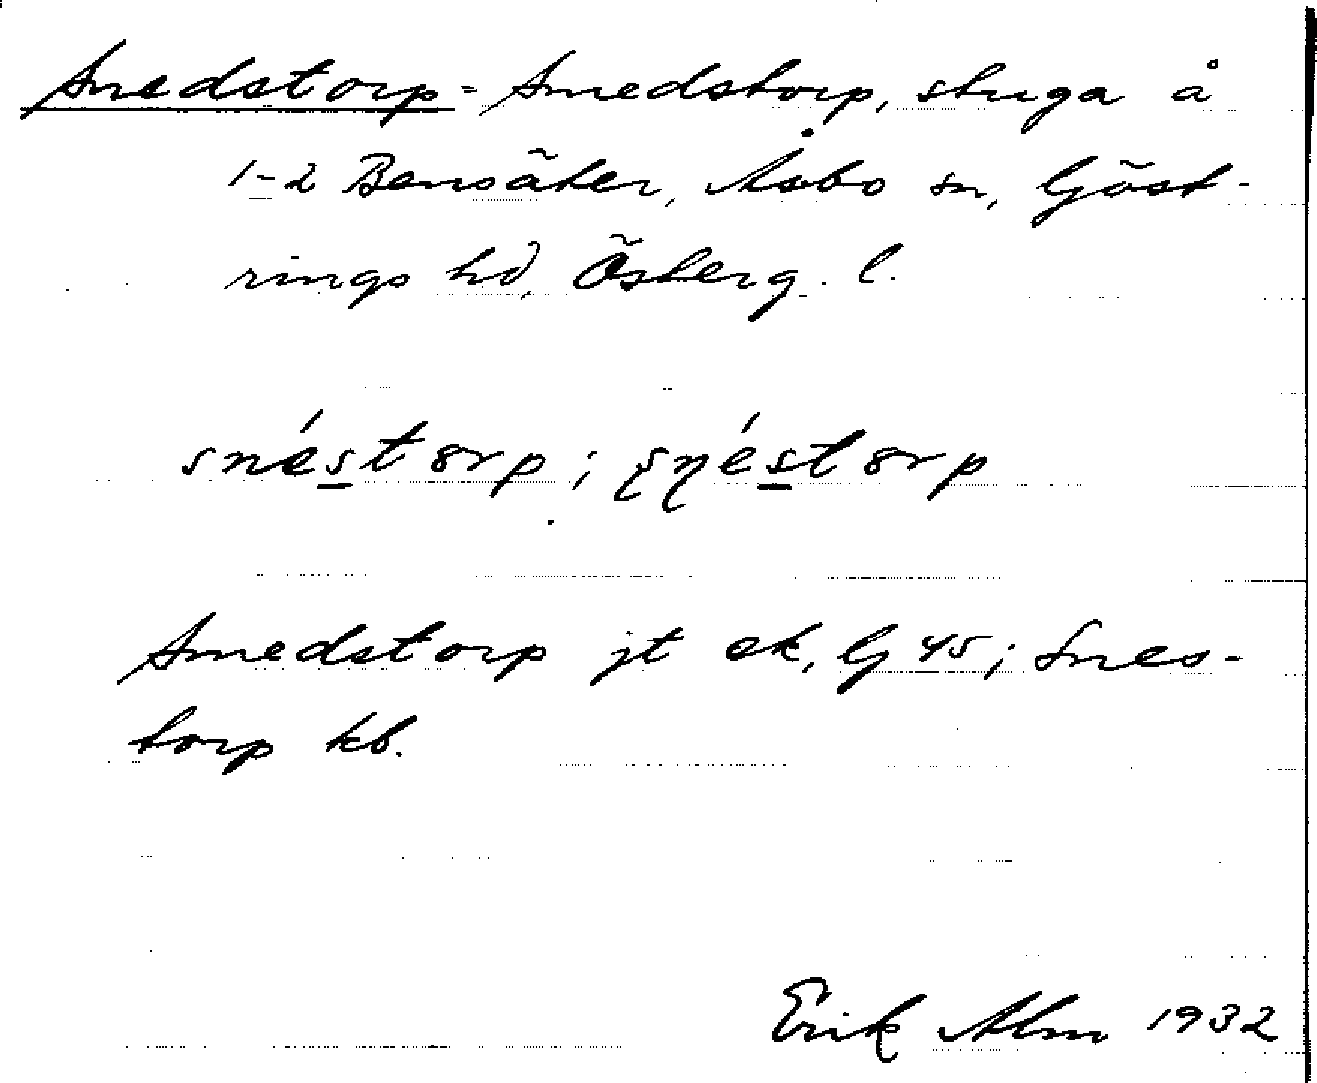 Smedstorp = Smedstorp, stuga å
1-2 Bensäter, Åsbo sn, Göst-
rings hd, Österg. l.
snéstorp; s̨ŋéstorp
Smedstorp jt ek, G 45; Snes-
torp kb.
Erik Alm 1932